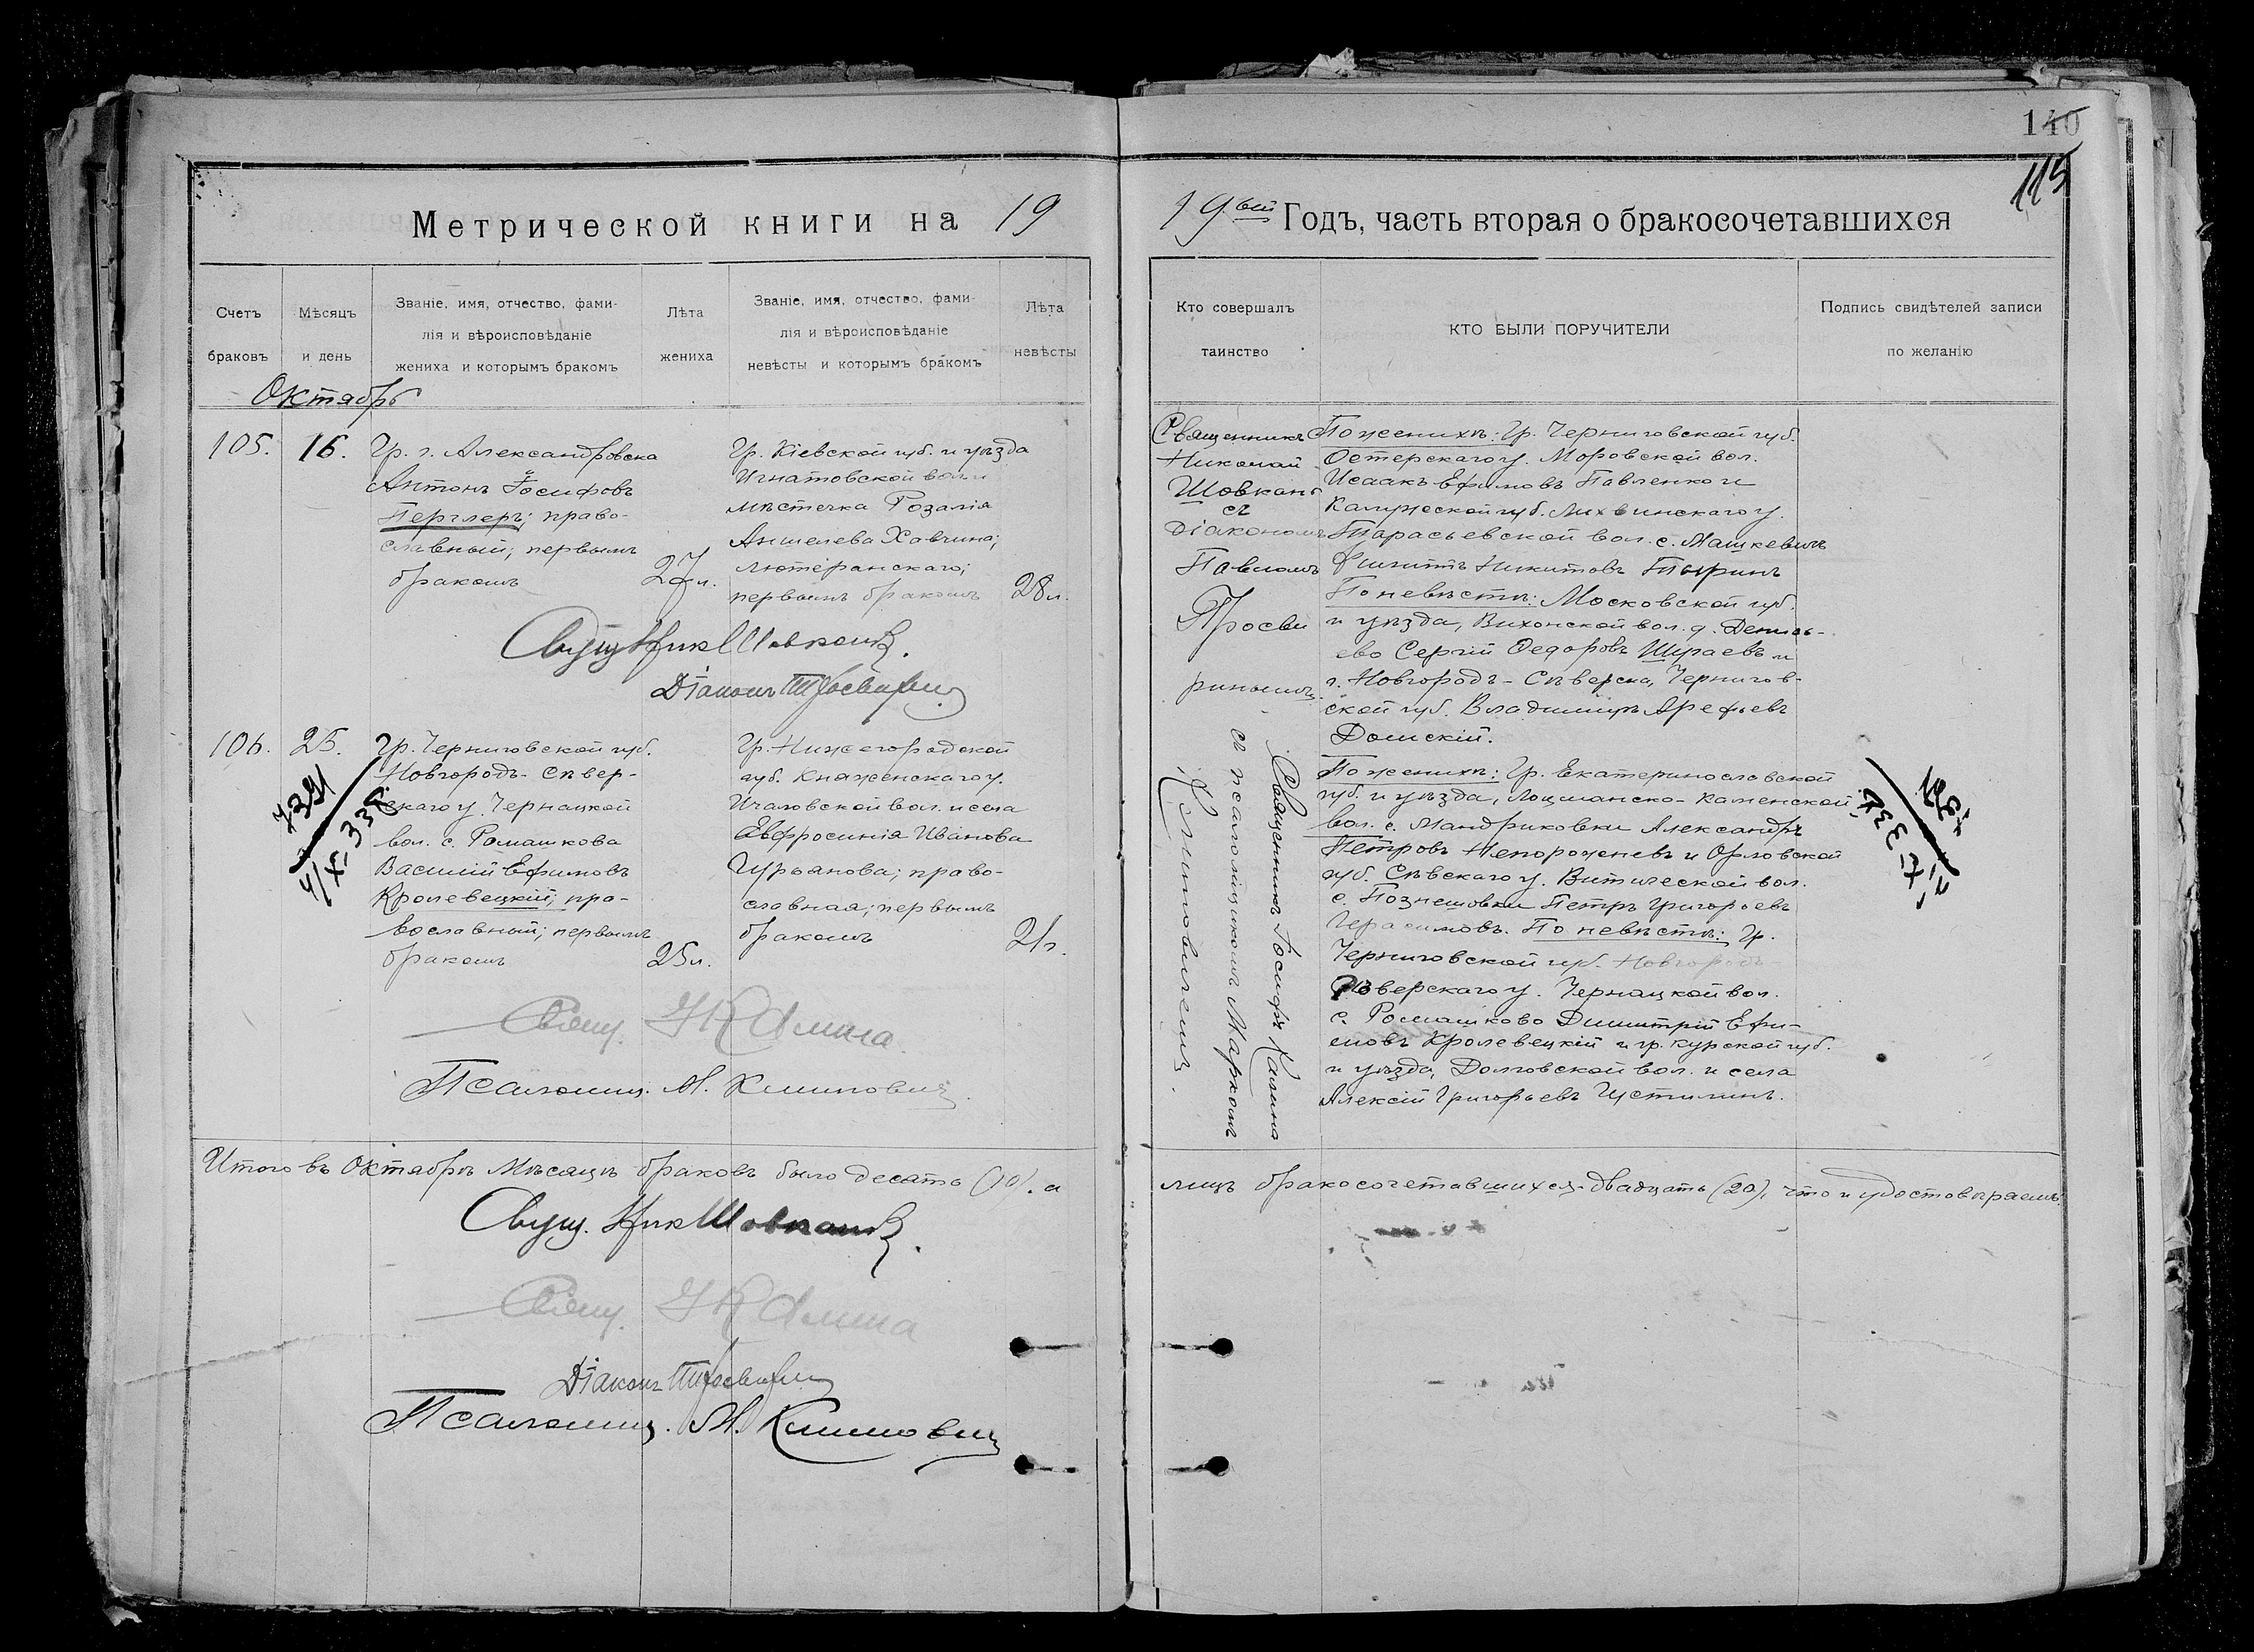 140
115
Метрической книги на 19
19ый Годъ, часть вторая о бракосочетавшихся
Счетъ браковъ
Мѣсяцъ и день
Званіе, имя, отчество, фами-
лія и вѣроисповѣданіе
жениха и которымъ бракомъ
Лѣта жениха
Званіе, имя, отчество, фами-
лія и вѣроисповѣданіе
невѣсты и которымъ бракомъ
Лѣта невѣсты
Кто совершалъ таинство
КТО БЫЛИ ПОРУЧИТЕЛИ
Подпись свидѣтелей записи
по желанію
Октябрь
105.
16.
Гр. г. Александровска
Антонъ Іосифовъ
Перглеръ; право-
славный; первымъ
бракомъ
27 л.
Гр. Кіевской губ. и уѣзда
Игнатовской вол. и
мѣстечка Розалія
Аншелева Хавчина;
лютеранскаго;
первымъ бракомъ
28 л.
Священникъ
Николай
Шовкань
съ
Діакономъ
Павломъ
Просви
ринымъ.
По женихѣ: Гр. Черниговской губ.
Остерскаго у. Моровской вол.
Исаакъ Ефимовъ Павленко и
Калужской губ. Лихвинскаго у.
Тарасьевской вол. с. Машкевичъ
Никитовъ Тюринъ
По невѣстѣ: Московской губ.
и уѣзда, Вихонской вол. д. Денись-
ево Сергій Федоровъ Шураевъ и
г. Новгородъ-Сѣверска, Чернигов-
ской губ. Владиміръ Арефьевъ
Домскій.
Свящ Ник Шовкань.
Діаконъ П Просвирин
106.
25.
7391
4/XI-33г.
Гр. Черниговской губ.
Новгородъ-Сѣвер-
скаго у. Чернацкой
вол. с. Ромашкова
Василій Ефимовъ
Кролевецкій; пра-
вославный; первымъ
бракомъ
25 л.
Гр. Нижегородской
губ. Княженскаго у.
Ичаловской вол. и села
Евфросинія Иванова
Гурьянова; право-
славная; первымъ
бракомъ
21 г.
Священникъ Іосифъ Калина
съ псаломщикомъ Маркомъ
Климовичемъ.
По женихѣ: Гр. Екатеринославской
губ. и уѣзда, Лоцманско-Каменской
вол. с. Мандриковки Александръ
Петровъ Непорожневъ и Орловской
губ. Сѣвскаго у. Витичской вол.
с. Познешовки Петръ Григорьевъ
Герасимовъ. По невѣстѣ: Гр.
Черниговской губ. Новгородъ-
Сѣверскаго у. Чернацкой вол.
с. Ромашково Димитрій Ефи-
мовъ Кролевецкій и гр. Курской губ.
и уѣзда, Долговской вол. и села
Алексій Григорьевъ Устилинъ.
Свящ. І Калина
Псаломщ. М. Климович
Итого въ Октябрѣ мѣсяцѣ браковъ было десять (10), а
лицъ бракосочетавшихся двадцать (20), что и удостовѣряемъ:
Свящ. Ник Шовкань.
Свящ. І Калина
Діаконъ П Просвирин
Псаломщ. М. Климович